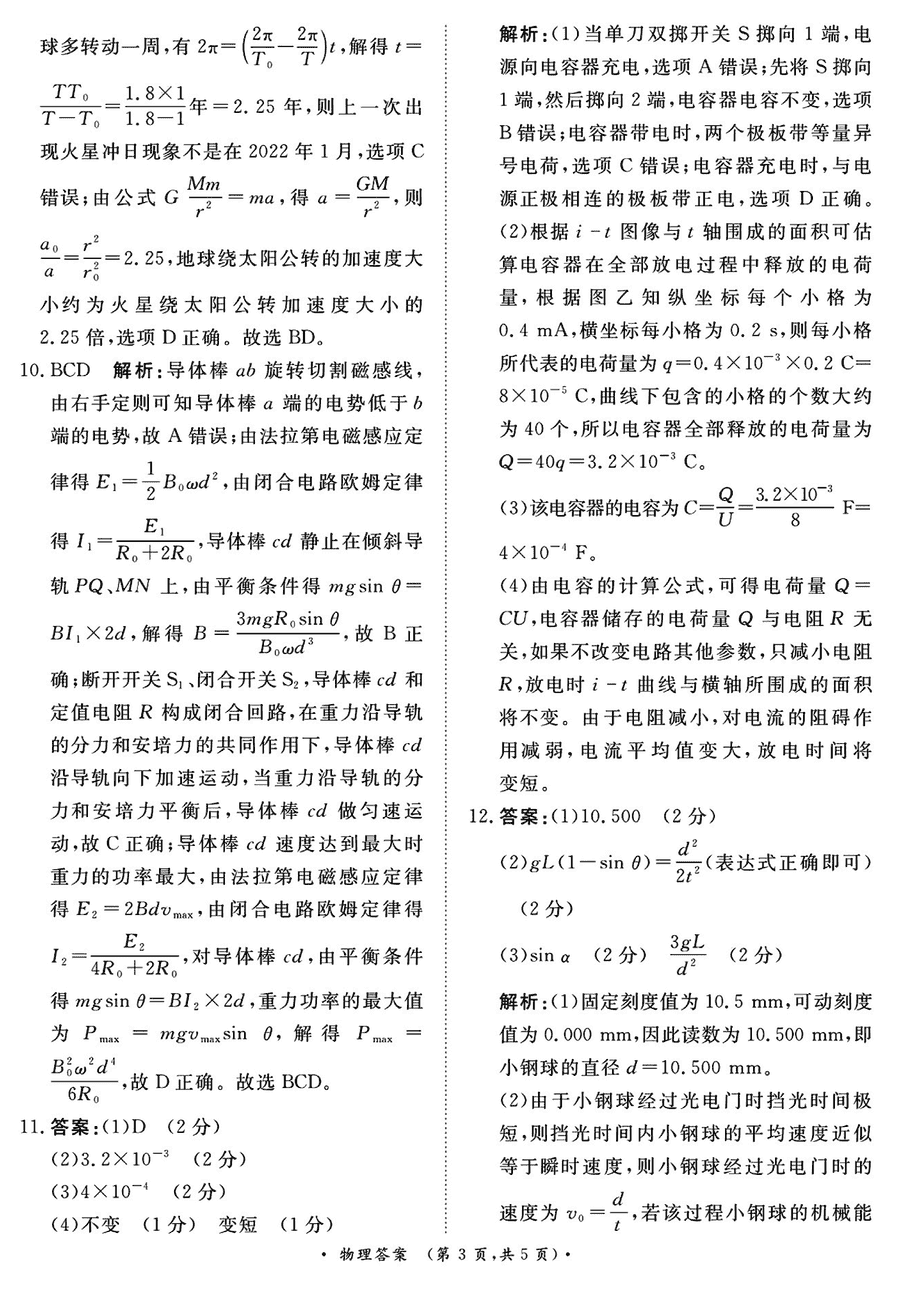 球多转动一周,有 2π=(2π/T₀−2π/T)t,解得 t=
TT₀/(T−T₀)=(1.8×1)/(1.8−1)年=2.25 年,则上一次出
现火星冲日现象不是在 2022 年 1 月,选项 C
错误;由公式 G Mm/r²=ma,得 a=GM/r²,则
a₀/a=r²/r₀²=2.25,地球绕太阳公转的加速度大
小约为火星绕太阳公转加速度大小的
2.25 倍,选项 D 正确。故选 BD。
10. BCD 解析:导体棒 ab 旋转切割磁感线,
由右手定则可知导体棒 a 端的电势低于 b
端的电势,故 A 错误;由法拉第电磁感应定
律得 E₁=1/2 B₀ωd²,由闭合电路欧姆定律
得 I₁=E₁/(R₀+2R₀),导体棒 cd 静止在倾斜导
轨 PQ、MN 上,由平衡条件得 mgsin θ=
BI₁×2d,解得 B=3mgR₀sin θ/(B₀ωd³),故 B 正
确;断开开关 S₁、闭合开关 S₂,导体棒 cd 和
定值电阻 R 构成闭合回路,在重力沿导轨
的分力和安培力的共同作用下,导体棒 cd
沿导轨向下加速运动,当重力沿导轨的分
力和安培力平衡后,导体棒 cd 做匀速运
动,故 C 正确;导体棒 cd 速度达到最大时
重力的功率最大,由法拉第电磁感应定律
得 E₂=2Bdv_max,由闭合电路欧姆定律得
I₂=E₂/(4R₀+2R₀),对导体棒 cd,由平衡条件
得 mgsin θ=BI₂×2d,重力功率的最大值
为 P_max = mgv_max sin θ,解得 P_max =
B₀²ω²d⁴/6R₀,故 D 正确。故选 BCD。
11. 答案:(1)D (2 分)
(2)3.2×10⁻³ (2 分)
(3)4×10⁻⁴ (2 分)
(4)不变 (1 分) 变短 (1 分)
解析:(1)当单刀双掷开关 S 掷向 1 端,电
源向电容器充电,选项 A 错误;先将 S 掷向
1 端,然后掷向 2 端,电容器电容不变,选项
B 错误;电容器带电时,两个极板带等量异
号电荷,选项 C 错误;电容器充电时,与电
源正极相连的极板带正电,选项 D 正确。
(2)根据 i-t 图像与 t 轴围成的面积可估
算电容器在全部放电过程中释放的电荷
量,根据图乙知纵坐标每个小格为
0.4 mA,横坐标每小格为 0.2 s,则每小格
所代表的电荷量为 q=0.4×10⁻³×0.2 C=
8×10⁻⁵ C,曲线下包含的小格的个数大约
为 40 个,所以电容器全部释放的电荷量为
Q=40q=3.2×10⁻³ C。
(3)该电容器的电容为 C=Q/U=(3.2×10⁻³)/8 F=
4×10⁻⁴ F。
(4)由电容的计算公式,可得电荷量 Q=
CU,电容器储存的电荷量 Q 与电阻 R 无
关,如果不改变电路其他参数,只减小电阻
R,放电时 i-t 曲线与横轴所围成的面积
将不变。由于电阻减小,对电流的阻碍作
用减弱,电流平均值变大,放电时间将
变短。
12. 答案:(1)10.500 (2 分)
(2)gL(1−sin θ)=d²/2t²(表达式正确即可)
(2 分)
(3)sin α (2 分) 3gL/d² (2 分)
解析:(1)固定刻度值为 10.5 mm,可动刻度
值为 0.000 mm,因此读数为 10.500 mm,即
小钢球的直径 d=10.500 mm。
(2)由于小钢球经过光电门时挡光时间极
短,则挡光时间内小钢球的平均速度近似
等于瞬时速度,则小钢球经过光电门时的
速度为 v₀=d/t,若该过程小钢球的机械能
• 物理答案 (第 3 页,共 5 页) •